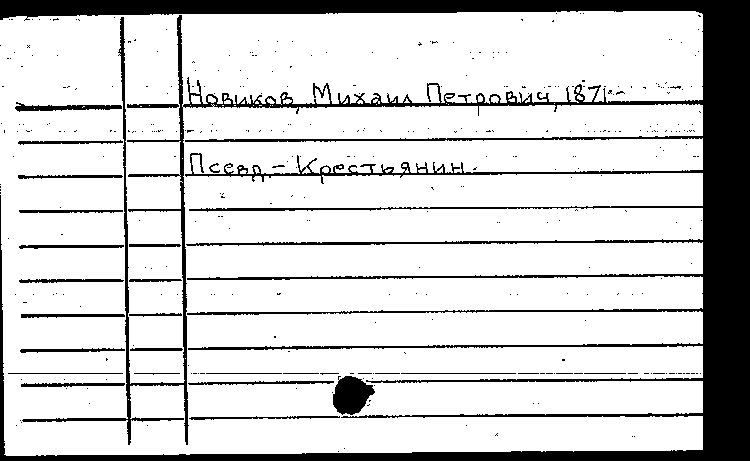 Новиков, Михаил Петрович, 1871-
Псевд. - Крестьянин.